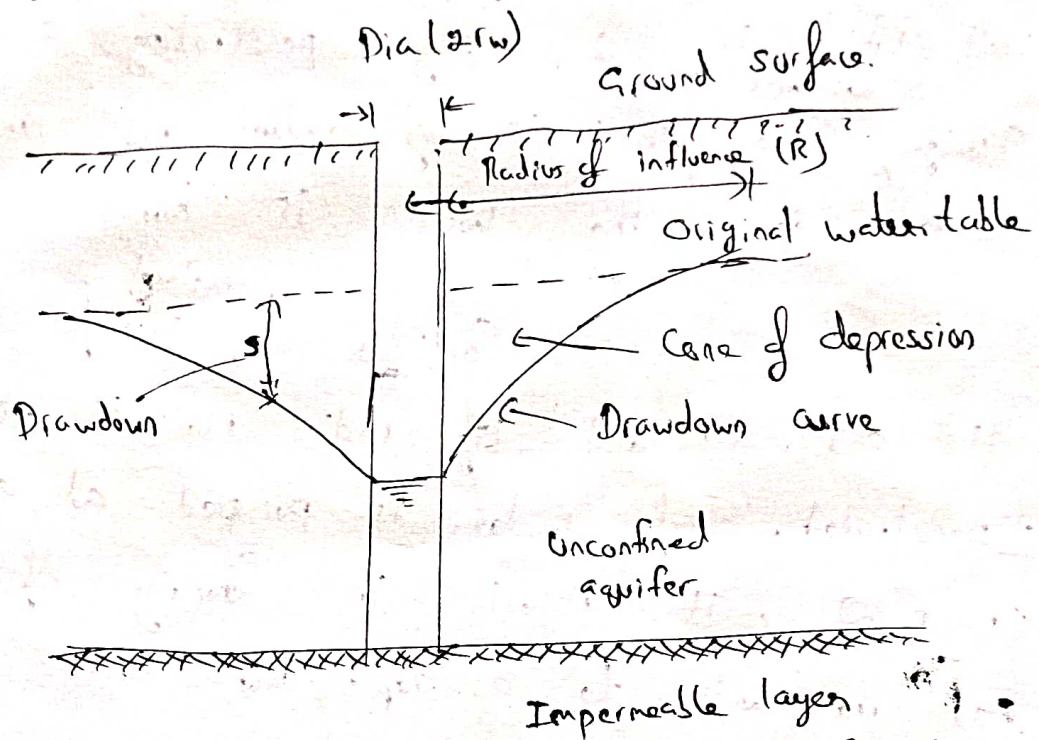 Dia (2rw)
Ground surface.
Radius of influence (R)
Original water table
S
Cone of depression
Drawdown
Drawdown curve
Unconfined
aquifer
Impermeable layer